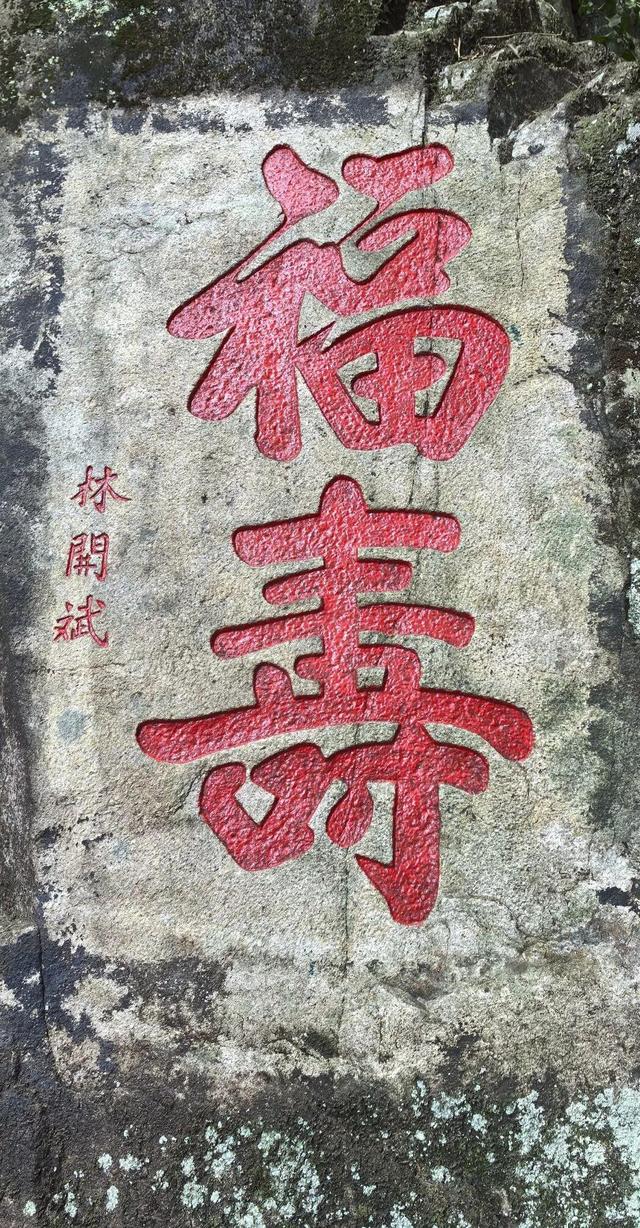 福壽
林開斌